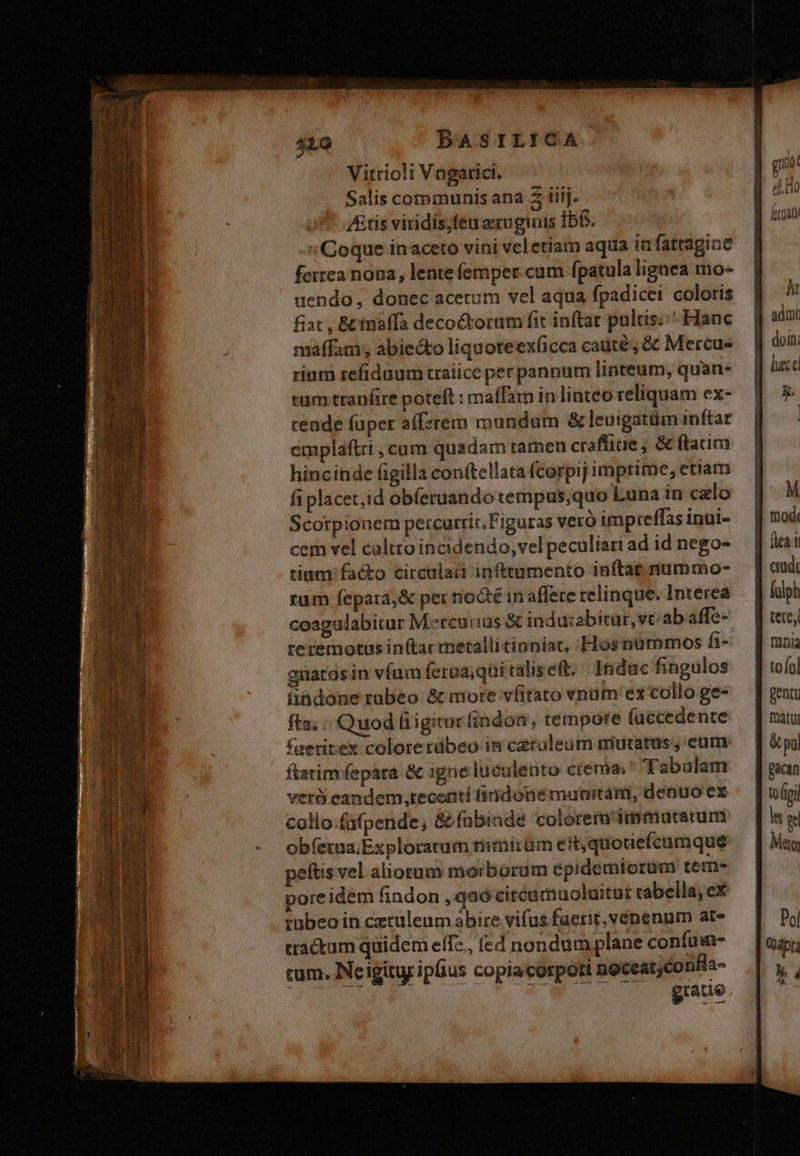 420 BASILICA
Vitrioli Vngarici.
Salis communis ana ℥ iiij.
Æris viridis, seu æruginis ℔ß.
Coque in aceto vini vel etiam aqua in sartagine
ferrea noua, lente semper cum spatula lignea mo-
uendo, donec acetum vel aqua spadicei coloris
fiat, & massa decoctorum fit instar pultis. Hanc
massam, abiecto liquore exsicca cautè, & Mercu-
rium residuum traiice per pannum linteum, quan-
tum transire potest: massam in linteo reliquam ex-
tende super asserem mundum & leuigatum instar
emplastri, cum quadam tamen crassitie, & statim
hincinde sigilla constellata scorpij imprime, etiam
si placet, id obseruando tempus, quo Luna in cælo
Scorpionem percurrit. Figuras verò impressas inui-
cem vel cultro incidendo, vel peculiari ad id nego-
tium facto circulari instrumento instar nummo-
rum separa, & per nocté in assere relinque. Interea
coagulabitur Mercurius & indurabitur, vt ab asse-
re remotus instar metalli tinniat. Hos nummos si-
gnatos in vsum serua, qui talis est. Induc singulos
sindone rubeo & more vsitato vnum ex collo ge-
sta. Quod si igitur sindon, tempore succedente
fuerit ex colore rubeo in cæruleum mutatus, eum
statim separa & igne luculento crema. Tabulam
verò eandem, recenti sindone munitam, denuo ex
collo suspende, & subinde colorem immutatum
obserua. Exploratum nimirùm est, quotiescumque
pestis vel aliorum morborum epidemiorum tem-
pore idem sindon, quo circumuoluitur tabella, ex
rubeo in cæruleum abire visus fuerit, venenum at-
tractum quidem esse, sed nondum plane consum-
tum. Ne igitur ipsius copia corpori noceat, confla-
gratio